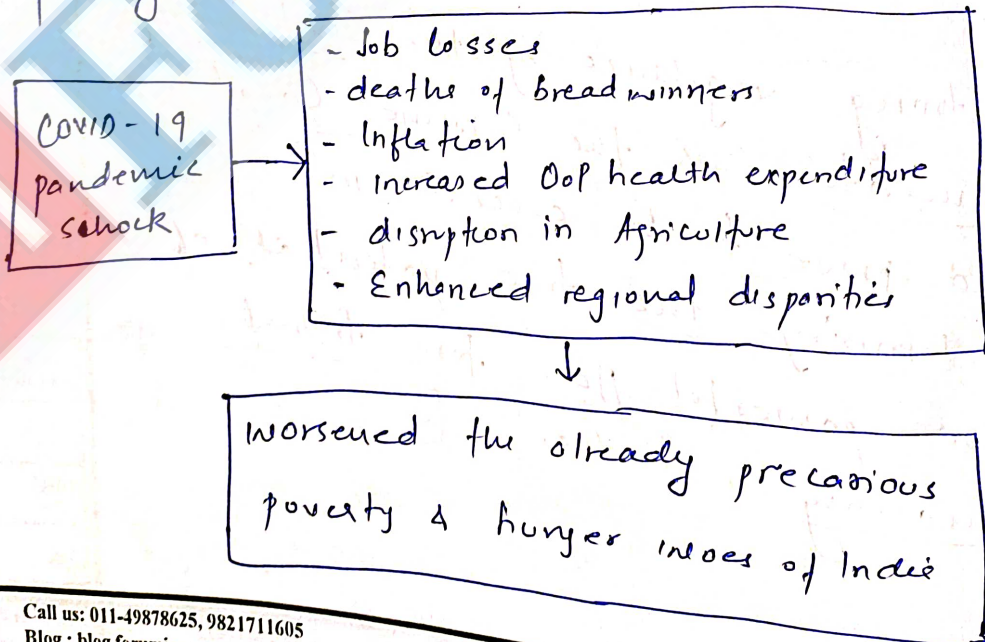 COVID-19
pandemic
schock
- Job losses
- deaths of bread winners
- Inflation
- increased OoP health expenditure
- disruption in Agriculture
- Enhanced regional disparities
worsened the already precarious
poverty & hunger woes of India
Call us: 011-49878625, 9821711605
Blog : blog.forumi